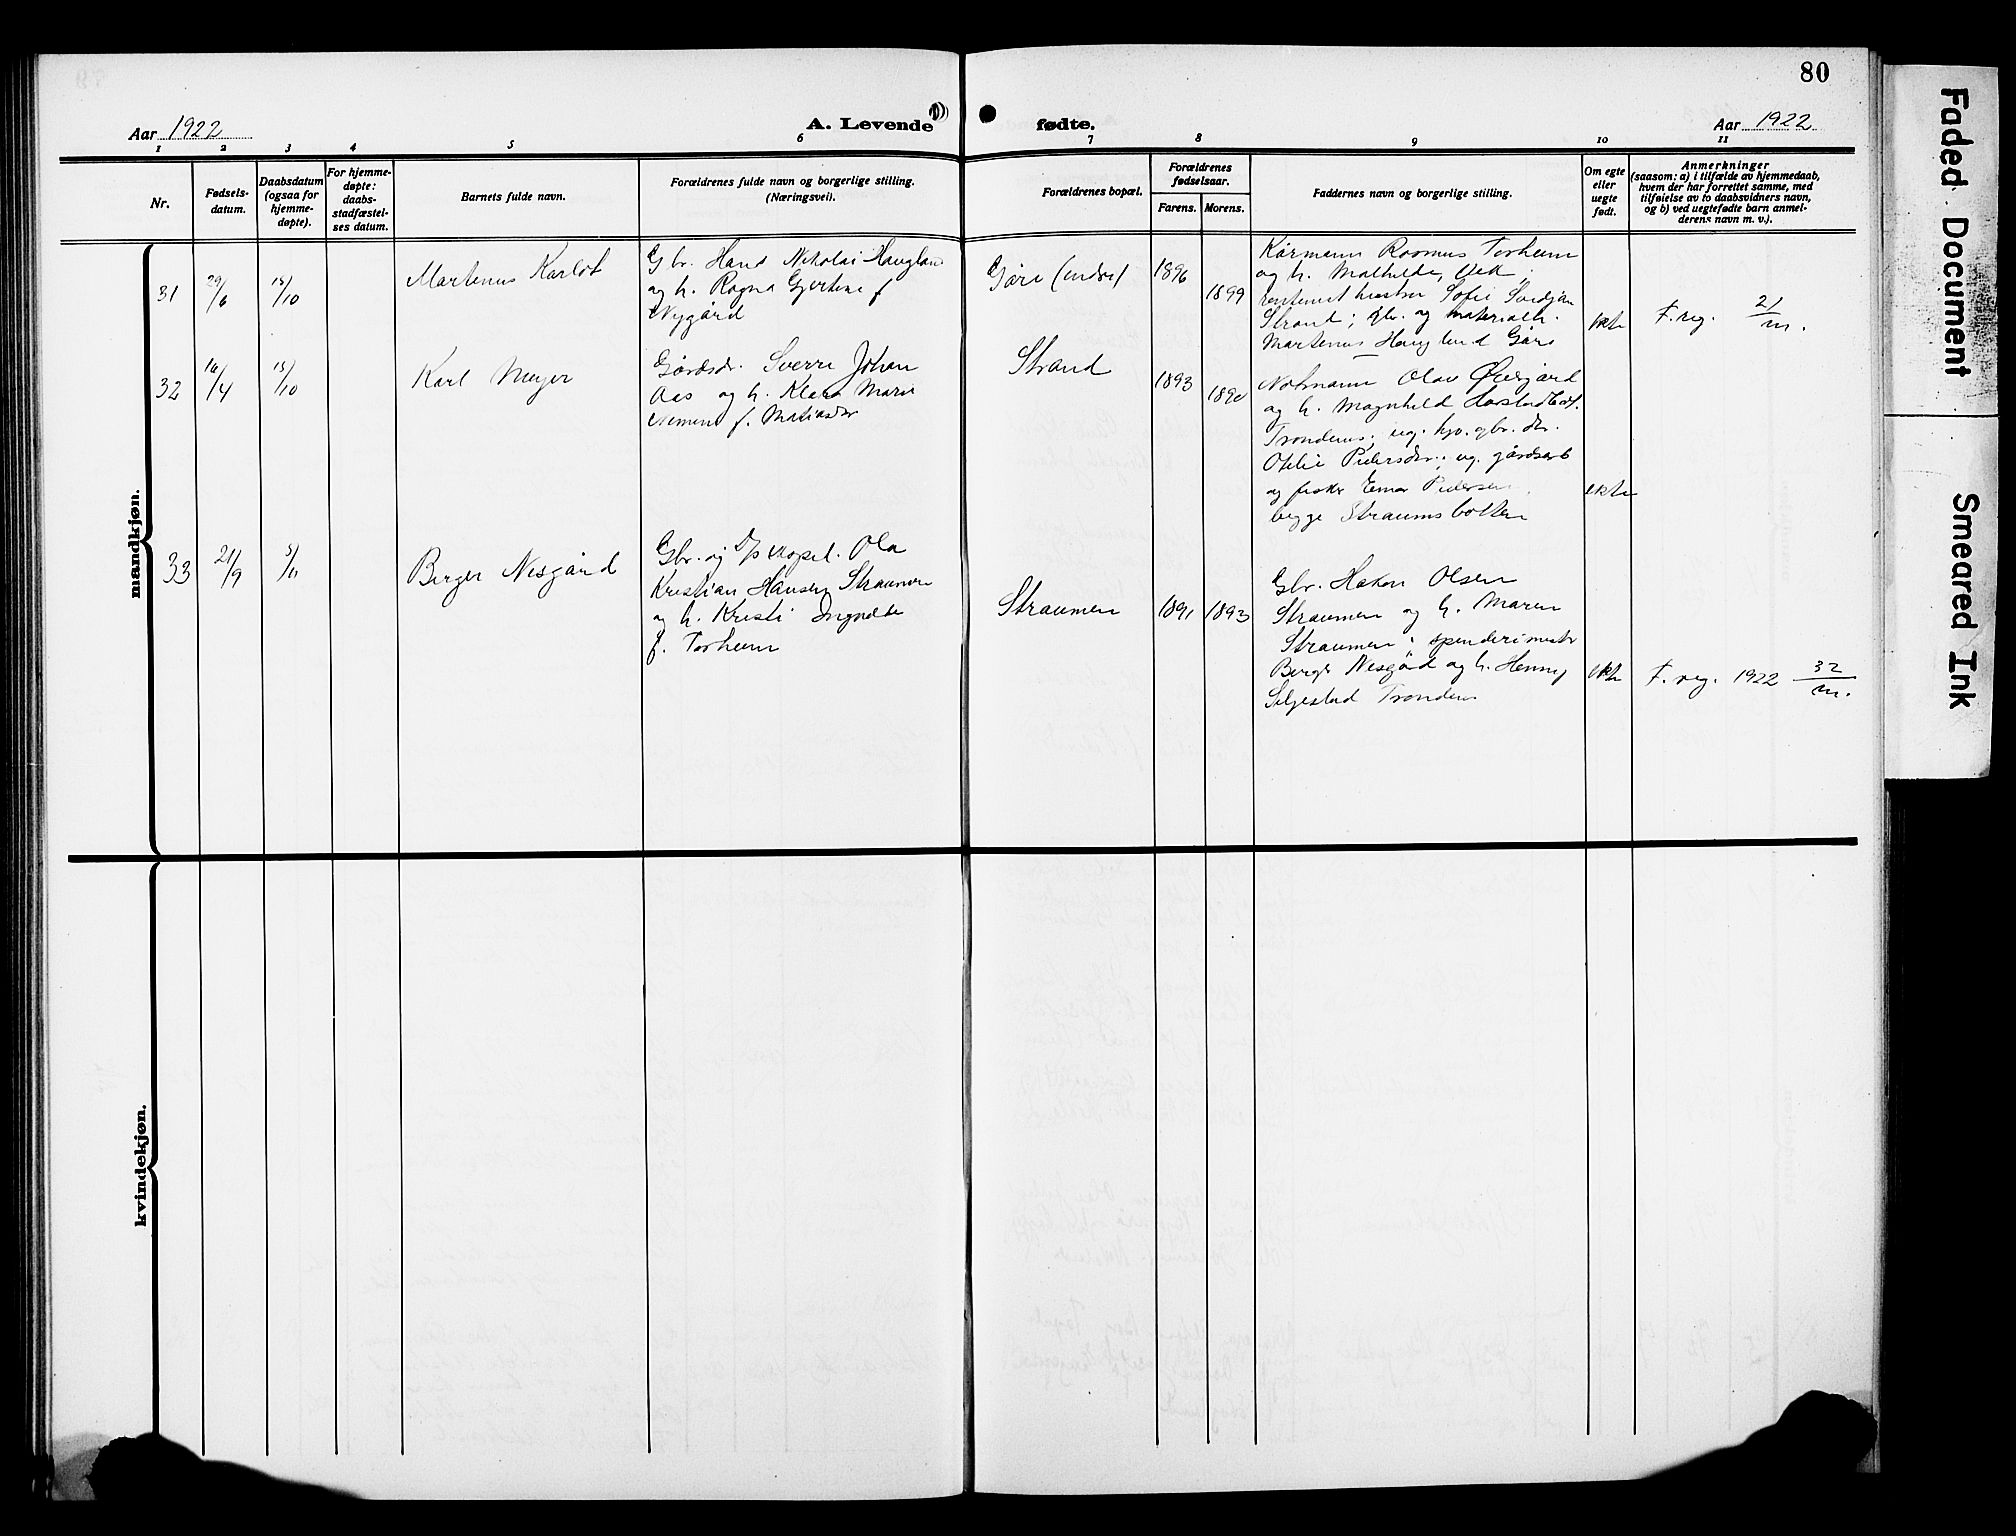 80
Aar 1922
A. Levende
fødte.
Aar 1922
1 2 3 4 5 6 7 8 9 10 11
Nr.
Fødsels-
datum.
Daabsdatum
(ogsaa for
hjemme-
døpte).
For hjemme-
døpte:
daabs-
stadfæstel-
ses datum.
Barnets fulde navn.
Forældrenes fulde navn og borgerlige stilling.
(Næringsvei).
Forældrenes bopæl.
Forældrenes
fødselsaar.
Farens. Morens.
Faddernes navn og borgerlige stilling.
Om egte
eller
uegte
født.
Anmerkninger
(saasom: a) i tilfælde av hjemmedaab,
hvem der har forrettet samme, med
tilføielse av to daabsvidners navn,
og b) ved uegtefødte barn anmel-
derens navn m. v.).
mandkjøn.
31
29/6
15/10
Martenus Karlot
Gbr. Hans Nikolai Haugland
og h. Ragna Gjertine f
Nygård
Gåre (indre)
1896
1899
Kårmann Rasmus Torheim
og h. Mathilde, Vik;
Sofie
Strand; gbr. og
Martenus Haugland Gåre
ekte
F. reg. 21/m.
32
16/4
15/10
Karl Meyer
Gårdsbr. Sverre Johan
Aas og h. Klara Marie
f.
Strand
1893
1890
Notmann Olav
og h. Magnhild
Trondenes; ug. gbr. dtr.
Pedersdtr.; ug. gårdsarb
og fisker Einar Pedersen
begge Straumsbotten
ekte
33
21/9
5/11
Berger Nesgård
Gbr. og Ola
Kristian Hansen Straumen
og h. Kristi
f. Torheim
Straumen
1891
1893
Gbr. Håkon Olsen
Straumen og h. Maren
Straumen;
Berger Nesgård og h. Henny
Selgestad Trondenes
ekte
F. reg. 1922 32/m.
kvindekjøn.
Faded Document
Smeared Ink